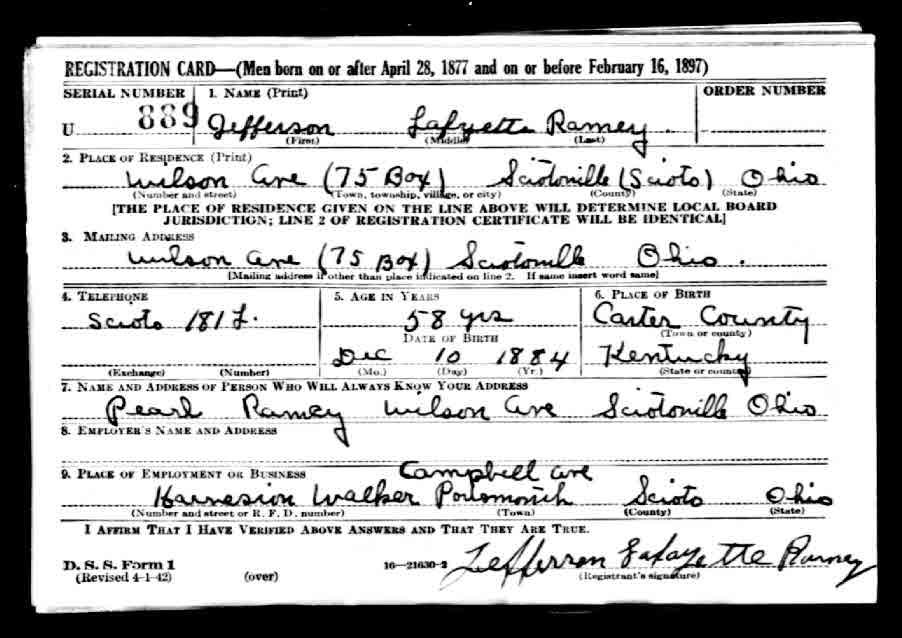 REGISTRATION CARD—(Men born on or after April 28, 1877 and on or before February 16, 1897)
SERIAL NUMBER 1. NAME (Print) ORDER NUMBER
U 889 Jefferson Lafyette Ramey
(First) (Middle) (Last)
2. PLACE OF RESIDENCE (Print)
Wilson Ave (75 Box) Sciotoville (Scioto) Ohio
(Number and street) (Town, township, village, or city) (County) (State)
[THE PLACE OF RESIDENCE GIVEN ON THE LINE ABOVE WILL DETERMINE LOCAL BOARD
JURISDICTION; LINE 2 OF REGISTRATION CERTIFICATE WILL BE IDENTICAL]
3. MAILING ADDRESS
Wilson Ave (75 Box) Sciotoville Ohio.
[Mailing address if other than place indicated on line 2. If same insert word same]
4. TELEPHONE 5. AGE IN YEARS 6. PLACE OF BIRTH
Scioto 181 L. 58 yrs Carter County
DATE OF BIRTH (Town or county)
Dec 10 1884 Kentucky
(Exchange) (Number) (Mo.) (Day) (Yr.) (State or country)
7. NAME AND ADDRESS OF PERSON WHO WILL ALWAYS KNOW YOUR ADDRESS
Pearl Ramey Wilson Ave Sciotoville Ohio
8. EMPLOYER'S NAME AND ADDRESS
9. PLACE OF EMPLOYMENT OR BUSINESS Campbell Ave
Walker Scioto Ohio
(Number and street or R. F. D. number) (Town) (County) (State)
I AFFIRM THAT I HAVE VERIFIED ABOVE ANSWERS AND THAT THEY ARE TRUE.
D. S. S. Form 1
(Revised 4-1-42) (over) 16—21630-2 Jefferson Lafayette Ramey
(Registrant's signature)